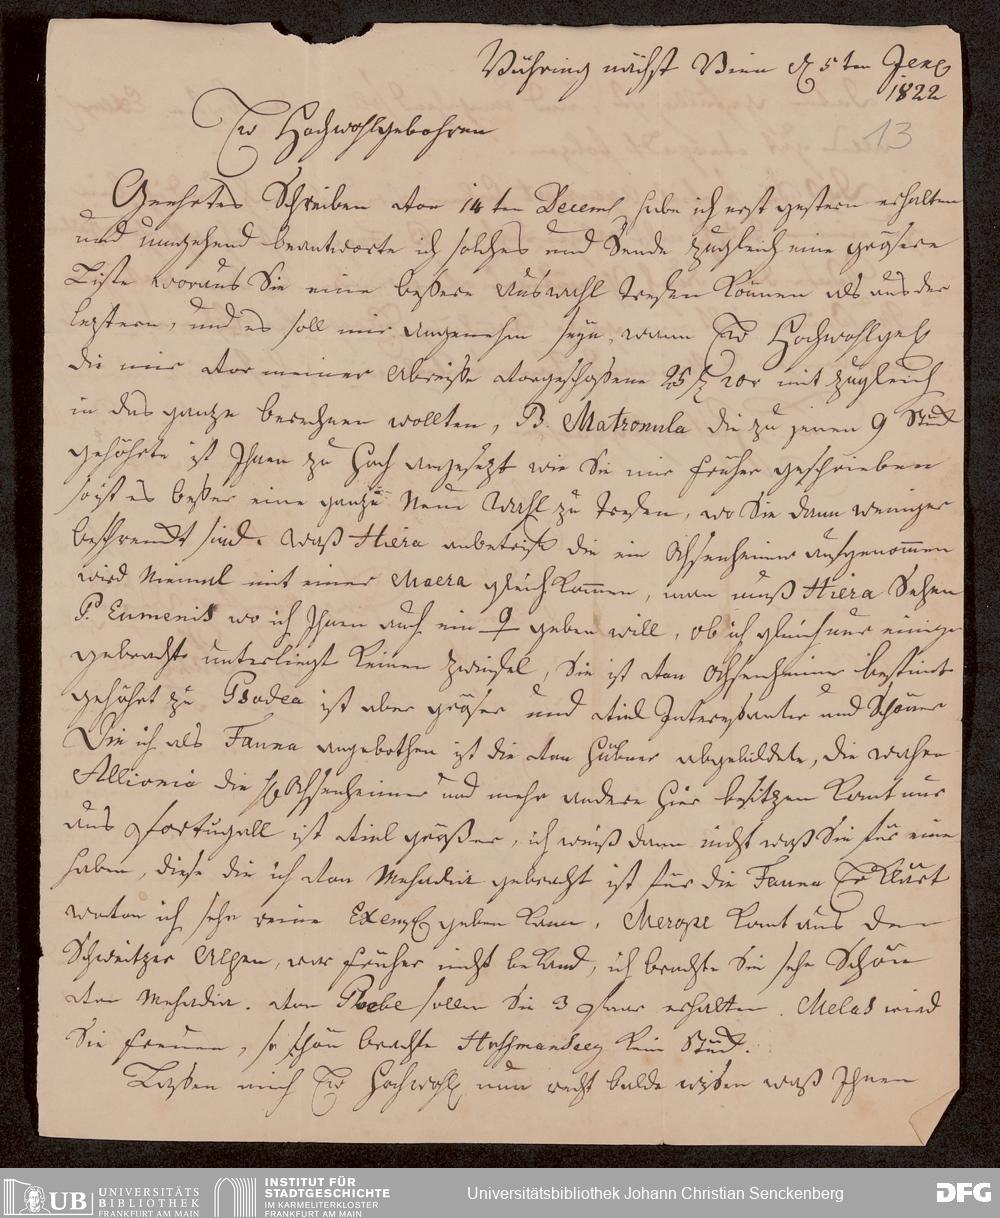 Währing nächst Wien d 5ten Jenr
1822
13
Ew Hochwohlgebohren
Geehrtes Schreiben von 14ten Decembr habe ich erst gestern erhalten
und umgehend beantworte ich solches und Sende zugleich eine grösere
Liste woraus Sie eine beßere Auswahl treffen können als aus der
leztern, und es soll mir angenehm seyn, wann Ew Hochwohlgeb
die mir vor meiner Abreiße vorgeschoßene 25 f 20x mit zugleich
in das ganze berechnen wollten, B. Matronula die zu jenen 9 Stück
gehöhrte ist Ihnen zu Hoch angesezt wie Sie mir früher geschrieben
so ist es beßer eine ganze Neue Wahl zu trefen, wo Sie dann weniger
beschrenckt sind. Waß Hiera anbetrift die ein Ochsenheimer aufgenom̄en
wird Niemal mit einer Maera gleich kom̄en, man muß Hiera Sehen
P. Eumenis wo ich Ihnen auch ein ♀ geben will, ob ich gleich nur einige
gebracht unterliegt keinen Zweifel, Sie ist von Ochsenheimer bestimt
gehöhrt zu Psodea ist aber gröser und viel Intereßanter und Schöner
Die ich als Fauna angebothen ist die von Hübner abgebildete, die wahre
Allionia die H Ochsenheimer und mehr andere Hier besitzen komt nur
aus Portugall ist viel größer, ich weiß dann nicht waß Sie für eine
haben, diese die ich von Mehadia gebracht ist für die Fauna Erklärt
wovon ich sehr reine Exempl geben kann. Merope komt aus den
Schweitzer Alpen, war früher nicht bekand, ich brachte Sie sehr Schön
von Mehadia. von Phebe sollen Sie 3 Paar erhalten. Melas wird
Sie freuen, so schön brachte Hoffmansegg kein Stück.
Laßen mich Ew Hochwohl nun recht balde wißen waß Ihnen
UB UNIVERSITÄTS
BIBLIOTHEK
FRANKFURT AM MAIN
INSTITUT FÜR
STADTGESCHICHTE
IM KARMELITERKLOSTER
FRANKFURT AM MAIN
Universitätsbibliothek Johann Christian Senckenberg
DFG